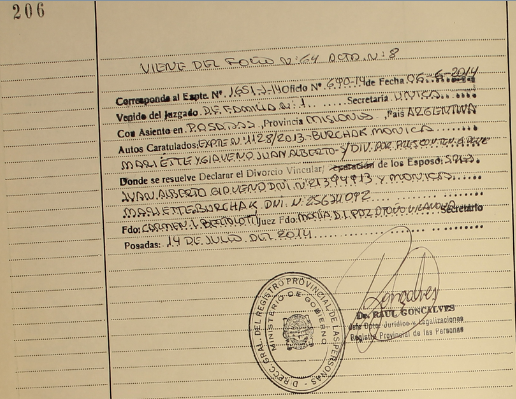 206
VIENE DEL FOLIO N: 64 ACTA N: 8
Corresponde al Expte. Nº 1651-J-14 Oficio Nº 690-14 de Fecha 05-6-2014
Venido del Juzgado DE FAMILIA N: 1 Secretaria UNICA
Con Asiento en POSADAS, Provincia MISIONES, País ARGENTINA
Autos Caratulados: EXPTE Nº 4128/2013-BURCHAK MONICA
MARIETTE Y GIAVENO JUAN ALBERTO S/ DIV. POR PRESENTACION
Donde se resuelve Declarar el Divorcio Vincular/ de los Esposos, SRES.
JUAN ALBERTO GIAVENO DNI. Nº Y MONICA
MARIETTE BURCHAK DNI. Nº 25621092
Fdo: CARMEN I. BERTOLOTTI Juez Fdo: MARIA D. L. PAZ Secretario
Posadas: 14 DE JULIO DEL 2014
DIRECC. GRAL. DEL REGISTRO PROVINCIAL DE LAS PERSONAS
MINISTERIO DE GOBIERNO
Goncalves
Dr. RAUL GONCALVES
Jefe Dpto. Jurídico y Legalizaciones
Registro Provincial de las Personas